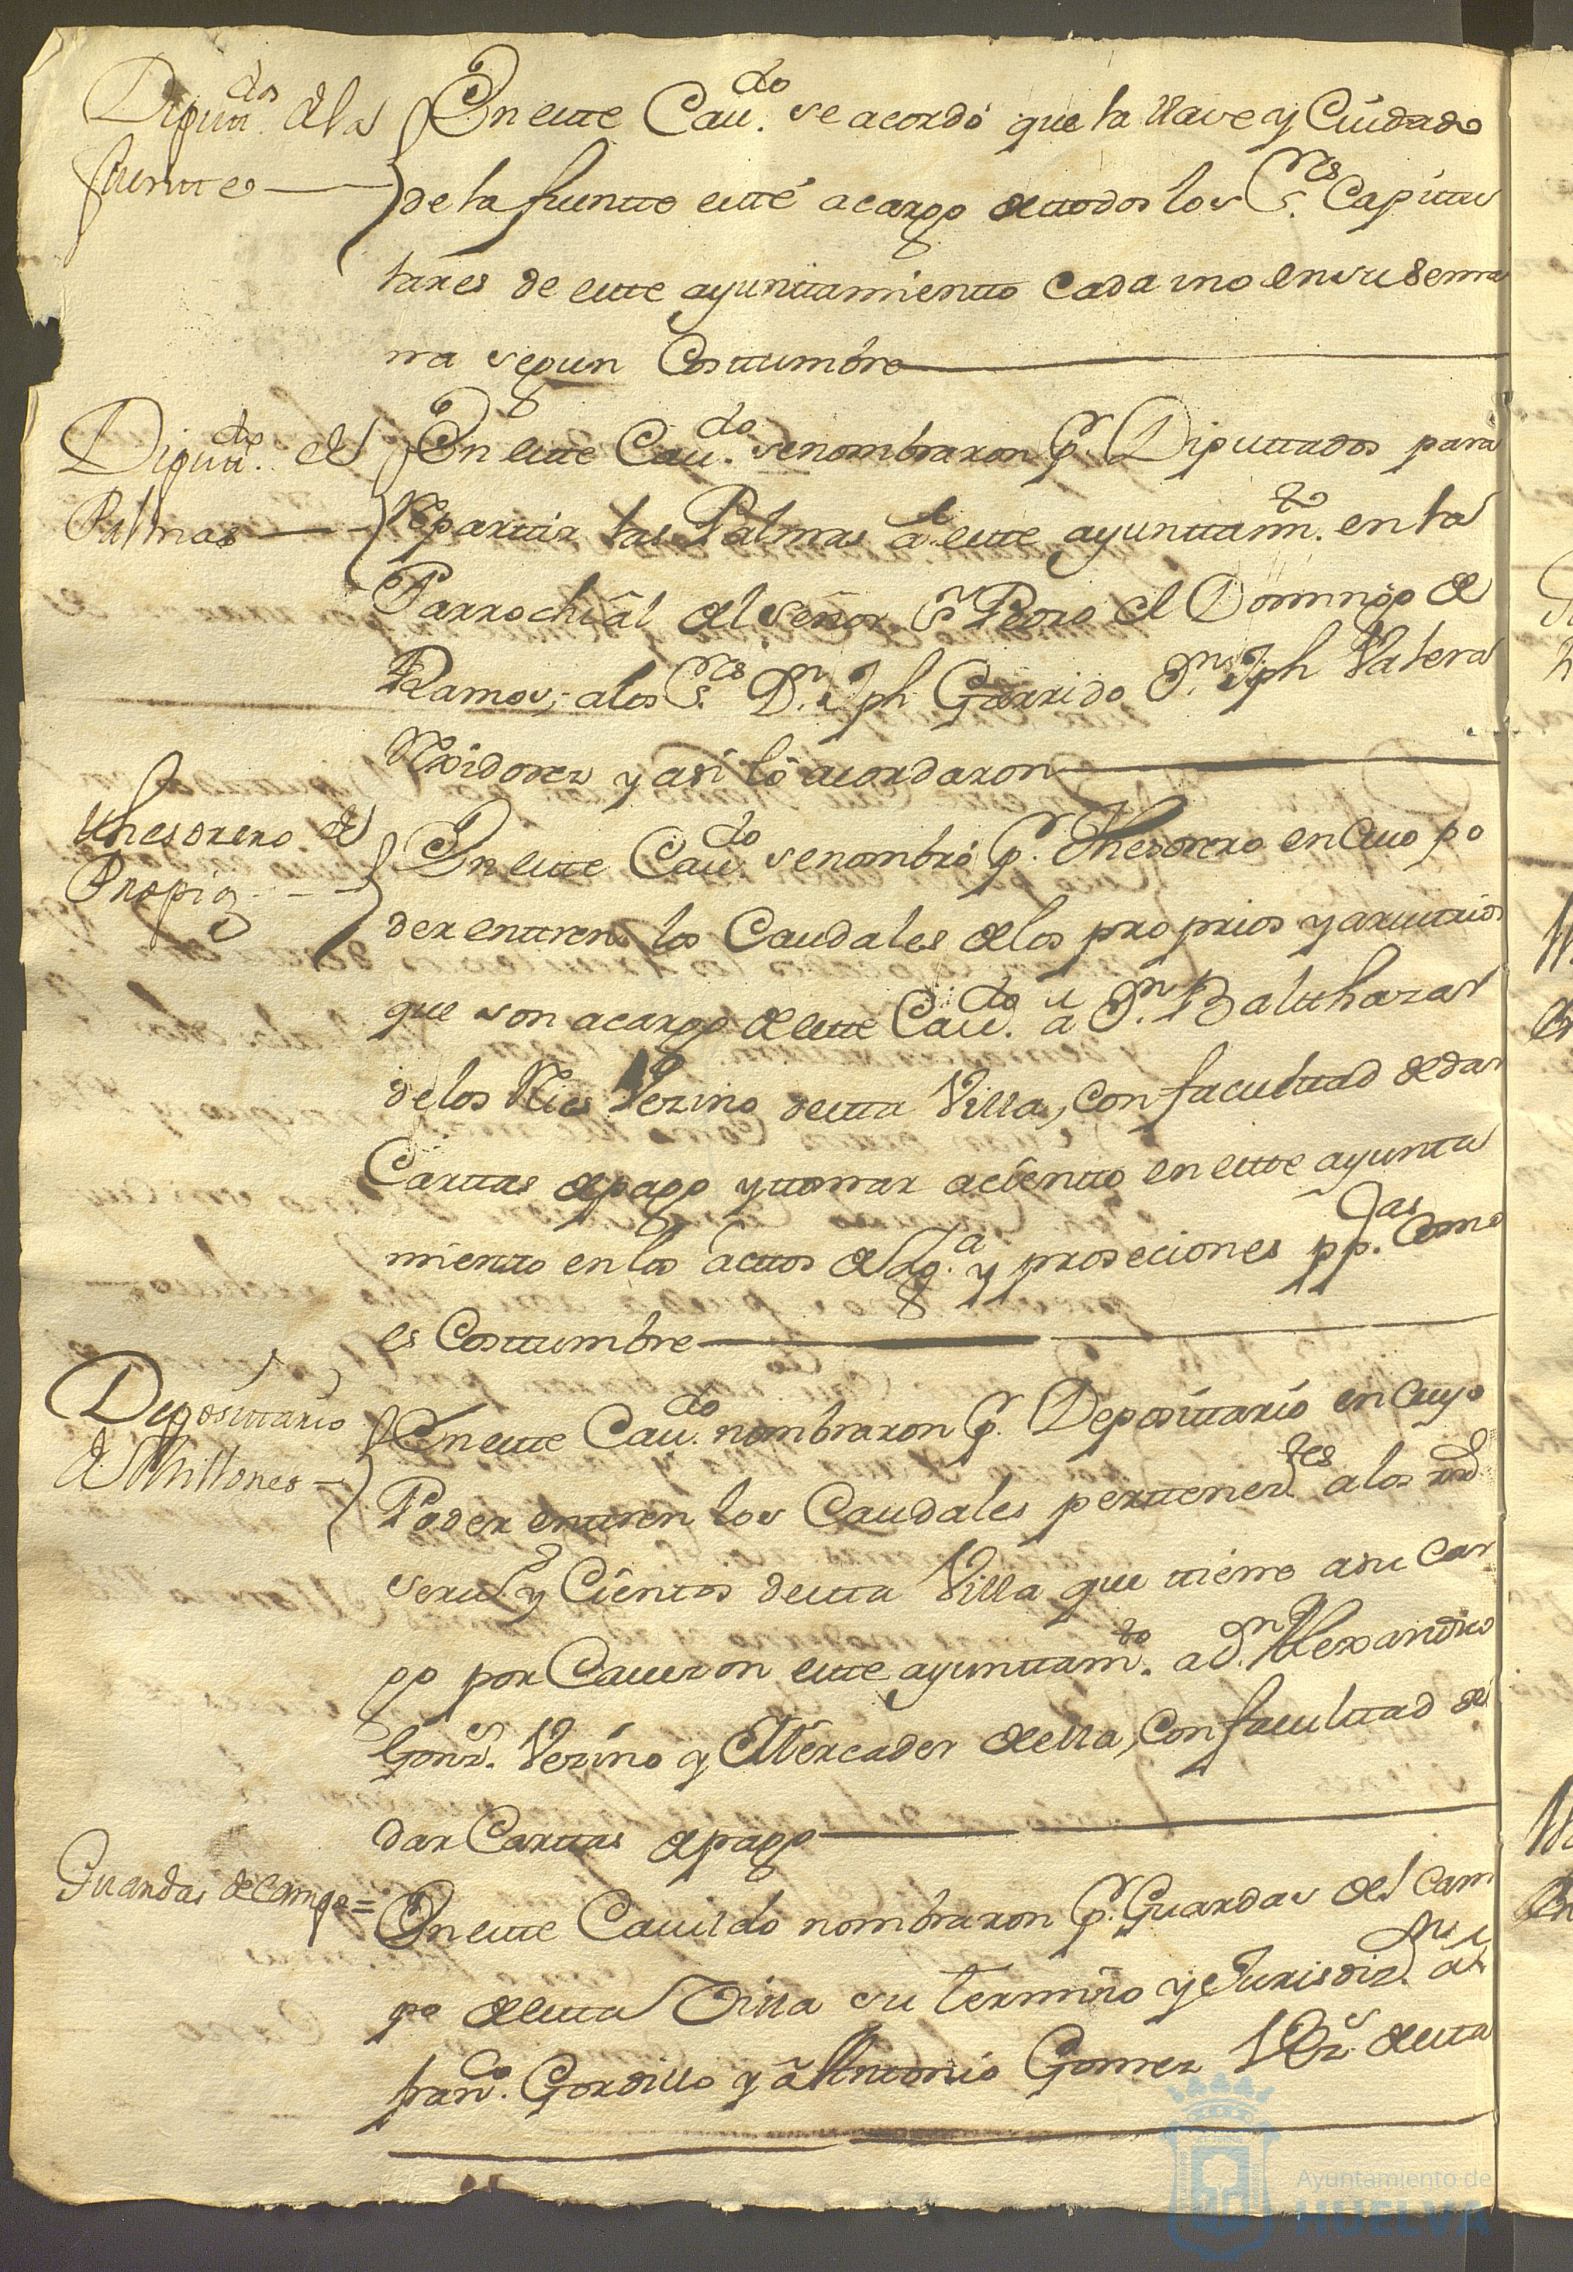 Diputt.dos de la
fuentte
En estte Cau.do se acordó que la llave y Cuidado
de la fuentte estté a cargo de ttodos los S.res Capittu
lares de estte ayunttamientto cada uno en su sema
na segun Costtumbre
Diputt.do de
Palmas
En estte Cau.do se nombraron p.r Diputtados para
Reparttir las Palmas a estte ayunttam.to en la
Parrochial del señor S.n Pedro el Domingo de
Ramos, a los S.res D.n Jph Garrido D.n Jph Valera
Rexidores y asi lo acordaron
thesorero de
Propios
En estte Cau.do se nombró p.r Thesorero en Cuio po
der enttren los Caudales de los proprios y aruittrios
que son a cargo de estte Cau.do a D.n Balthazar
de los Ries Vezino destta Villa, con facultad de dar
Carttas de pago y ttomar acientto en estte ayuntta
mientto en los acttos de Yg.a y prosesiones pp.cas como
es Costtumbre
Deposittario
de Millones
En estte Cau.do nombraron p.r Deposittario en Cuyo
Poder enttren los Caudales perttenez.tes a los
seru.os y Cientos destta Villa que ttiene a su Car
go por Cauezon estte ayunttam.to a D.n Alexandro
Gonz.s Vezino y Mercader de ella, con facultad de
dar Carttas de pago
Guardas de Campo =
En estte Cauildo nombraron p.r Guardas del Cam
po de estta Villa su termino y Jurisdiz.on a
fran.co Gordillo y a Anttonio Gomez Vez.s de estta
Ayuntamiento de
HUELVA